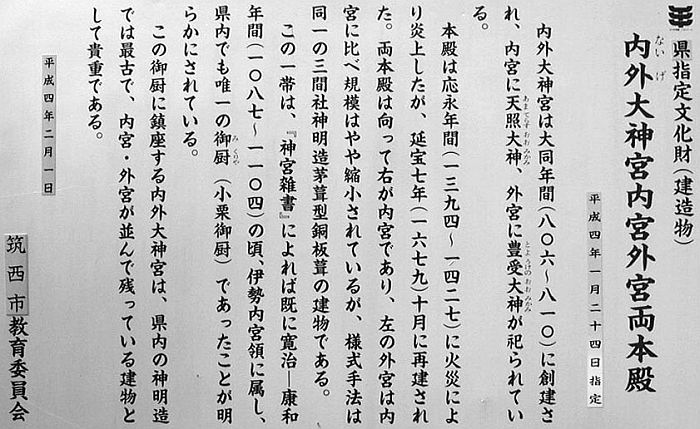 県指定文化財(建造物)
内外大神宮内宮外宮両本殿
ない げ
平成四年一月二十四日指定
内外大神宮は大同年間(八〇六〜八一〇)に創建さ
れ、内宮に天照大神、外宮に豊受大神が祀られてい
あまてらすおおみかみ
とようけのおおみかみ
る。
本殿は応永年間(一三九四〜一四二七)に火災によ
り炎上したが、延宝七年(一六七九)十月に再建され
た。両本殿は向って右が内宮であり、左の外宮は内
宮に比べ規模はやや縮小されているが、様式手法は
同一の三間社神明造茅葺型銅板葺の建物である。
この一帯は、『神宮雑書』によれば既に寛治―康和
年間(一〇八七〜一一〇四)の頃、伊勢内宮領に属し、
県内でも唯一の御厨(小栗御厨)であったことが明
みくりや
らかにされている。
この御厨に鎮座する内外大神宮は、県内の神明造
では最古で、内宮・外宮が並んで残っている建物と
して貴重である。
平成四年二月一日
筑西市教育委員会